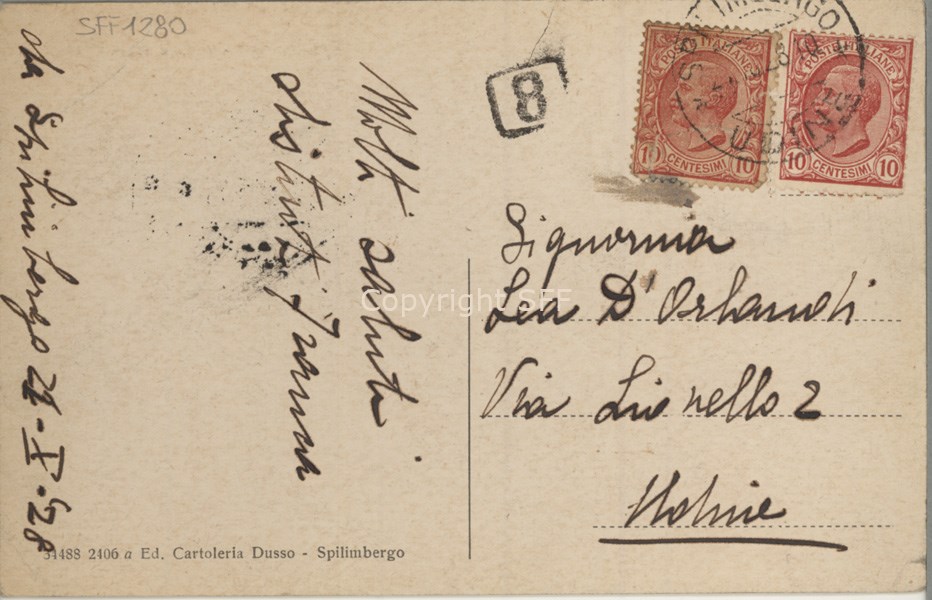 SFF1280
da Spilimbergo 28-X-28
Molti saluti
distinti
8
POSTE ITALIANE
10 CENTESIMI 10
POSTE ITALIANE
10 CENTESIMI 10
UDINE
Signorina
Lea D'Orlandi
Via Lionello 2
Udine
Copyright SFF
34488 2406 a Ed. Cartoleria Dusso - Spilimbergo